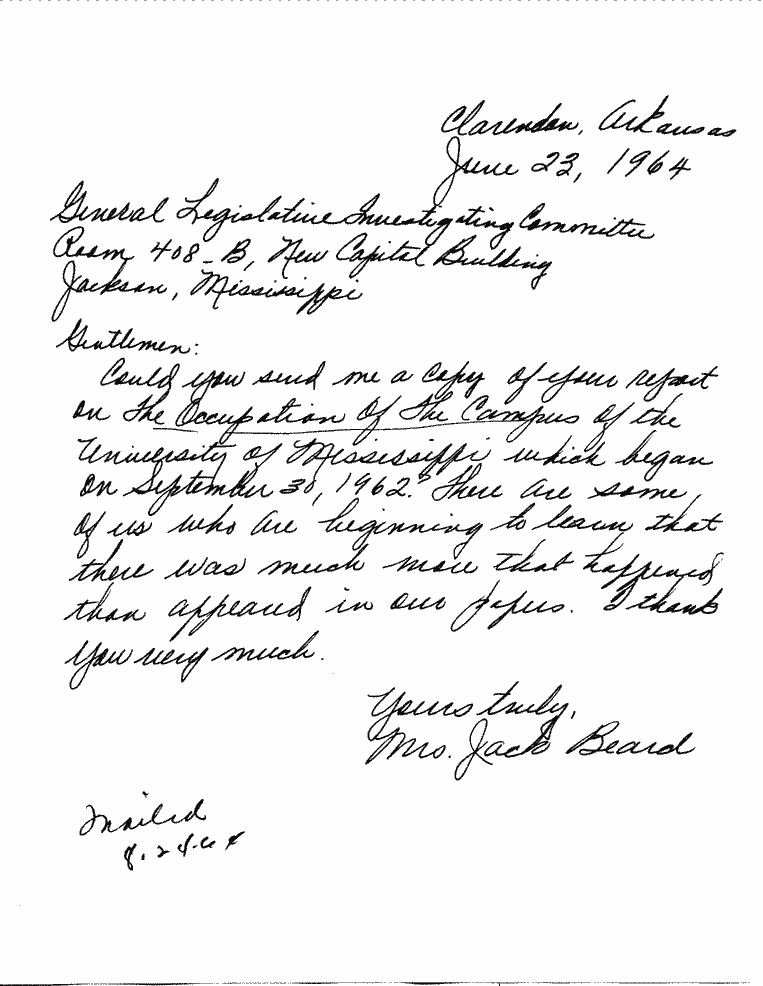 Clarendon, Arkansas
June 23, 1964
General Legislative Investigating Committee
Room 408-B, New Capitol Building
Jackson, Mississippi
Gentlemen:
Could you send me a copy of your report
on The Occupation Of The Campus Of the
University of Mississippi which began
on September 30, 1962? There are some
of us who are beginning to learn that
there was much more that happened
than appeared in our papers. I thank
you very much.
Yours truly,
Mrs. Jack Beard
Mailed
8.24.64